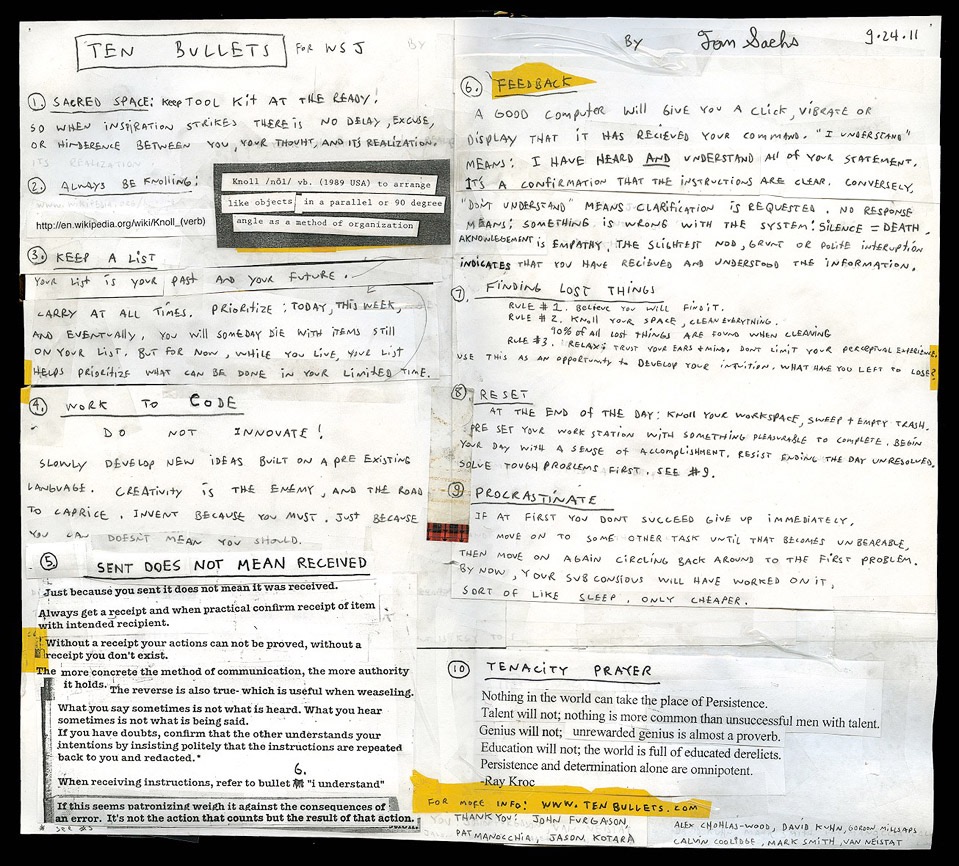 TEN BULLETS FOR WSJ BY
BY Tom Sachs 9.24.11
1. SACRED SPACE: Keep TOOL KIT AT THE READY!
SO WHEN INSPIRATION STRIKES THERE IS NO DELAY, EXCUSE,
OR HINDERENCE BETWEEN YOU, YOUR THOUHT, AND ITS REALIZATION.
ITS REALIZATION.
2. ALWAYS BE KNOLLING:
http://en.wikipedia.org/wiki/Knoll_(verb)
Knoll /nōl/ vb. (1989 USA) to arrange
like objects in a parallel or 90 degree
angle as a method of organization
3. KEEP A LIST
YOUR LIST IS YOUR PAST AND YOUR FUTURE.
CARRY AT ALL TIMES. PRIORITIZE: TODAY, THIS WEEK,
AND EVENTUALLY. YOU WILL SOMEDAY DIE WITH ITEMS STILL
ON YOUR LIST, BUT FOR NOW, WHILE YOU LIVE, YOUR LIST
HELPS PRIORITIZE WHAT CAN BE DONE IN YOUR LIMITED TIME.
4. WORK TO CODE
DO NOT INNOVATE!
SLOWLY DEVELOP NEW IDEAS BUILT ON A PRE EXISTING
LANGUAGE. CREATIVITY IS THE ENEMY, AND THE ROAD
TO CAPRICE. INVENT BECAUSE YOU MUST. JUST BECAUSE
YOU CAN DOESN'T MEAN YOU SHOULD.
5. SENT DOES NOT MEAN RECEIVED
Just because you sent it does not mean it was received.
Always get a receipt and when practical confirm receipt of item
with intended recipient.
Without a receipt your actions can not be proved, without a
receipt you don't exist.
The more concrete the method of communication, the more authority
it holds. The reverse is also true- which is useful when weaseling.
What you say sometimes is not what is heard. What you hear
sometimes is not what is being said.
If you have doubts, confirm that the other understands your
intentions by insisting politely that the instructions are repeated
back to you and redacted.*
When receiving instructions, refer to bullet 6. "i understand"
If this seems patronizing weigh it against the consequences of
an error. It's not the action that counts but the result of that action.
6. FEEDBACK
A GOOD COMPUTER WILL GIVE YOU A CLICK, VIBRATE OR
DISPLAY THAT IT HAS RECIEVED YOUR COMMAND. "I UNDERSTAND"
MEANS: I HAVE HEARD AND UNDERSTAND ALL OF YOUR STATEMENT.
IT'S A CONFIRMATION THAT THE INSTRUCTIONS ARE CLEAR. CONVERSELY,
"DON'T UNDERSTAND" MEANS CLARIFICATION IS REQUESTED. NO RESPONSE
MEANS: SOMETHING IS WRONG WITH THE SYSTEM: SILENCE = DEATH.
AKNOWLEDGEMENT IS EMPATHY. THE SLIGHTEST NOD, GRUNT OR POLITE INTERUPTION
INDICATES THAT YOU HAVE RECIEVED AND UNDERSTOOD THE INFORMATION.
7. FINDING LOST THINGS
RULE #1. BELIEVE YOU WILL FIND IT.
RULE #2. KNOLL YOUR SPACE, CLEAN EVERYTHING.
90% OF ALL LOST THINGS ARE FOUND WHEN CLEANING
RULE #3. RELAX; TRUST YOUR EARS + MIND, DONT LIMIT YOUR PERCEPTUAL EXPERIENCE.
USE THIS AS AN OPPORTUNITY TO DEVELOP YOUR INTUITION. WHAT HAVE YOU LEFT TO LOSE?
8 RESET
AT THE END OF THE DAY: KNOLL YOUR WORKSPACE, SWEEP + EMPTY TRASH.
PRE SET YOUR WORK STATION WITH SOMETHING PLEASURABLE TO COMPLETE. BEGIN
YOUR DAY WITH A SENSE OF ACCOMPLISHMENT. RESIST ENDING THE DAY UNRESOLVED.
SOLVE TOUGH PROBLEMS FIRST. SEE #9.
9. PROCRASTINATE
IF AT FIRST YOU DONT SUCCEED GIVE UP IMMEDIATELY,
MOVE ON TO SOME OTHER TASK UNTIL THAT BECOMES UNBEARABLE,
THEN MOVE ON AGAIN CIRCLING BACK AROUND TO THE FIRST PROBLEM.
BY NOW, YOUR SUB CONSIOUS WILL HAVE WORKED ON IT,
SORT OF LIKE SLEEP, ONLY CHEAPER.
10 TENACITY PRAYER
Nothing in the world can take the place of Persistence.
Talent will not; nothing is more common than unsuccessful men with talent.
Genius will not; unrewarded genius is almost a proverb.
Education will not; the world is full of educated derelicts.
Persistence and determination alone are omnipotent.
-Ray Kroc
FOR MORE INFO: WWW.TENBULLETS.COM
THANK YOU: JOHN FURGASON,
PAT MANOCCHIA, JASON KOTARA
ALEX CHOHLAS-WOOD, DAVID KUHN, GORDON MILLSAPS
CALVIN COOLIDGE, MARK SMITH, VAN NEISTAT